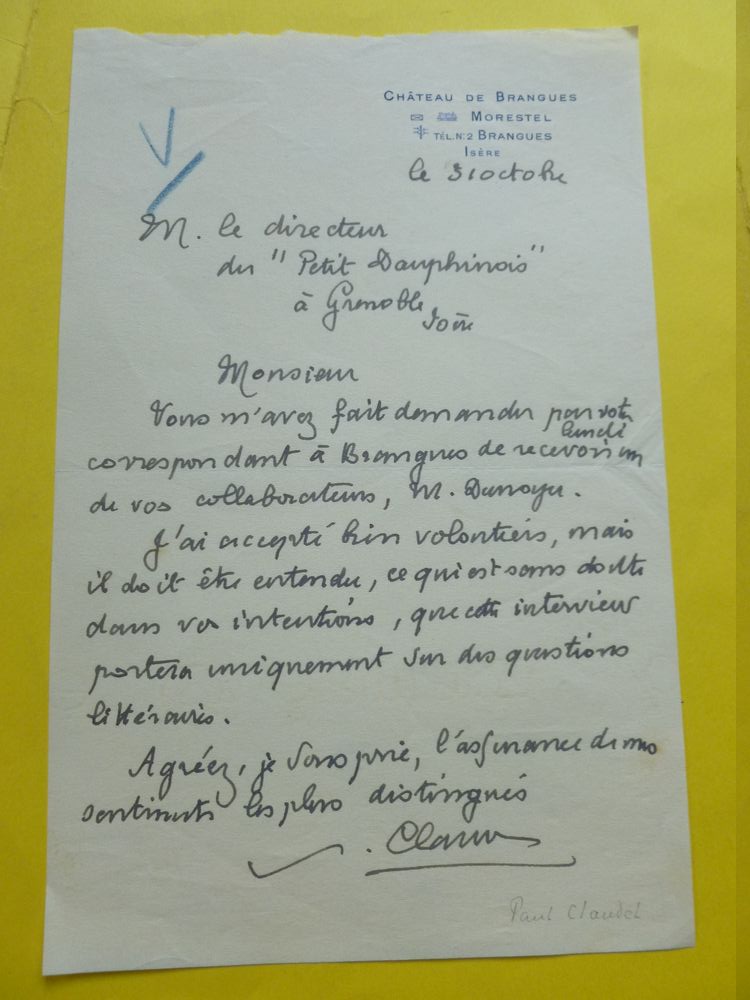 CHÂTEAU DE BRANGUES
MORESTEL
TÉL. N: 2 BRANGUES
ISÈRE
le 31 octobre
M. le directeur
du "Petit Dauphinois"
à Grenoble
Isère
Monsieur
Vous m'avez fait demander par votre
correspondant à Brangues de recevoir lundi un
de vos collaborateurs, M. Dunoyer.
J'ai accepté bien volontiers, mais
il doit être entendu, ce qui est sans doute
dans vos intentions, que cette interview
portera uniquement sur des questions
littéraires.
Agréez, je vous prie, l'assurance de mes
sentiments les plus distingués
. Claudel
Paul Claudel